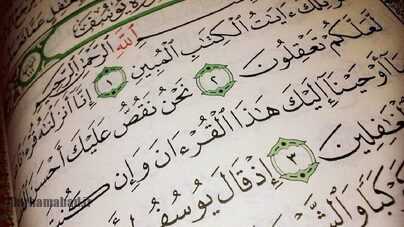 سورة يوسف
الله الرحمن الرحيم
تلك ءايت الكتب المبين ١ إنا أنزلنه قر
لعلكم تعقلون ٢ نحن نقص عليك أحسن
بما أوحينا إليك هذا القرءان وإن كنت
الغفلين ٣ إذ قال يوسف
كوكبا والشم